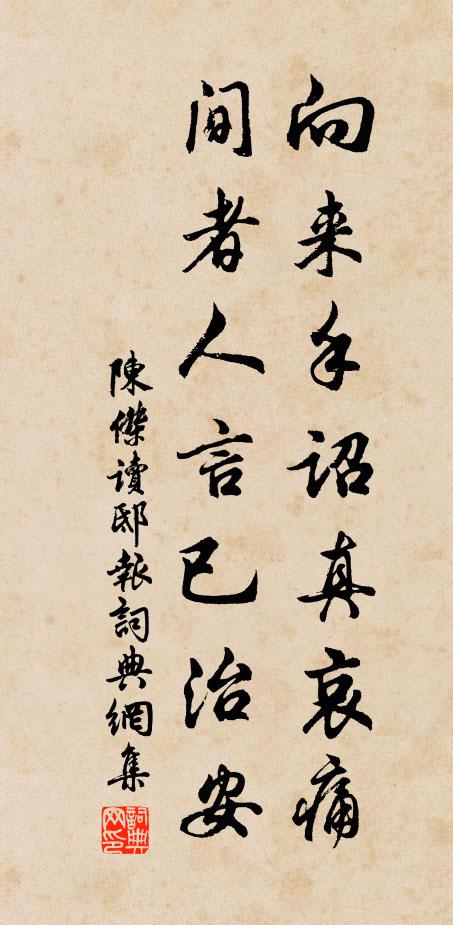 向来手詔真哀痛
间者人言已治安
陳傑讀邸報詞典網集
詞典网印